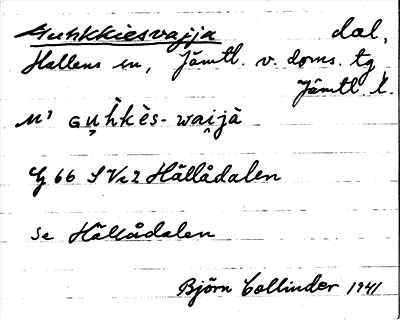 Guhkkiesvajja dal,
Hallens sn, Jämtl. v. doms. tg
Jämtl. l.
M¹ Gu̮h̀kès-wai̮jà
G 66 SV z Hållådalen
Se Hållådalen
Björn Collinder 1941